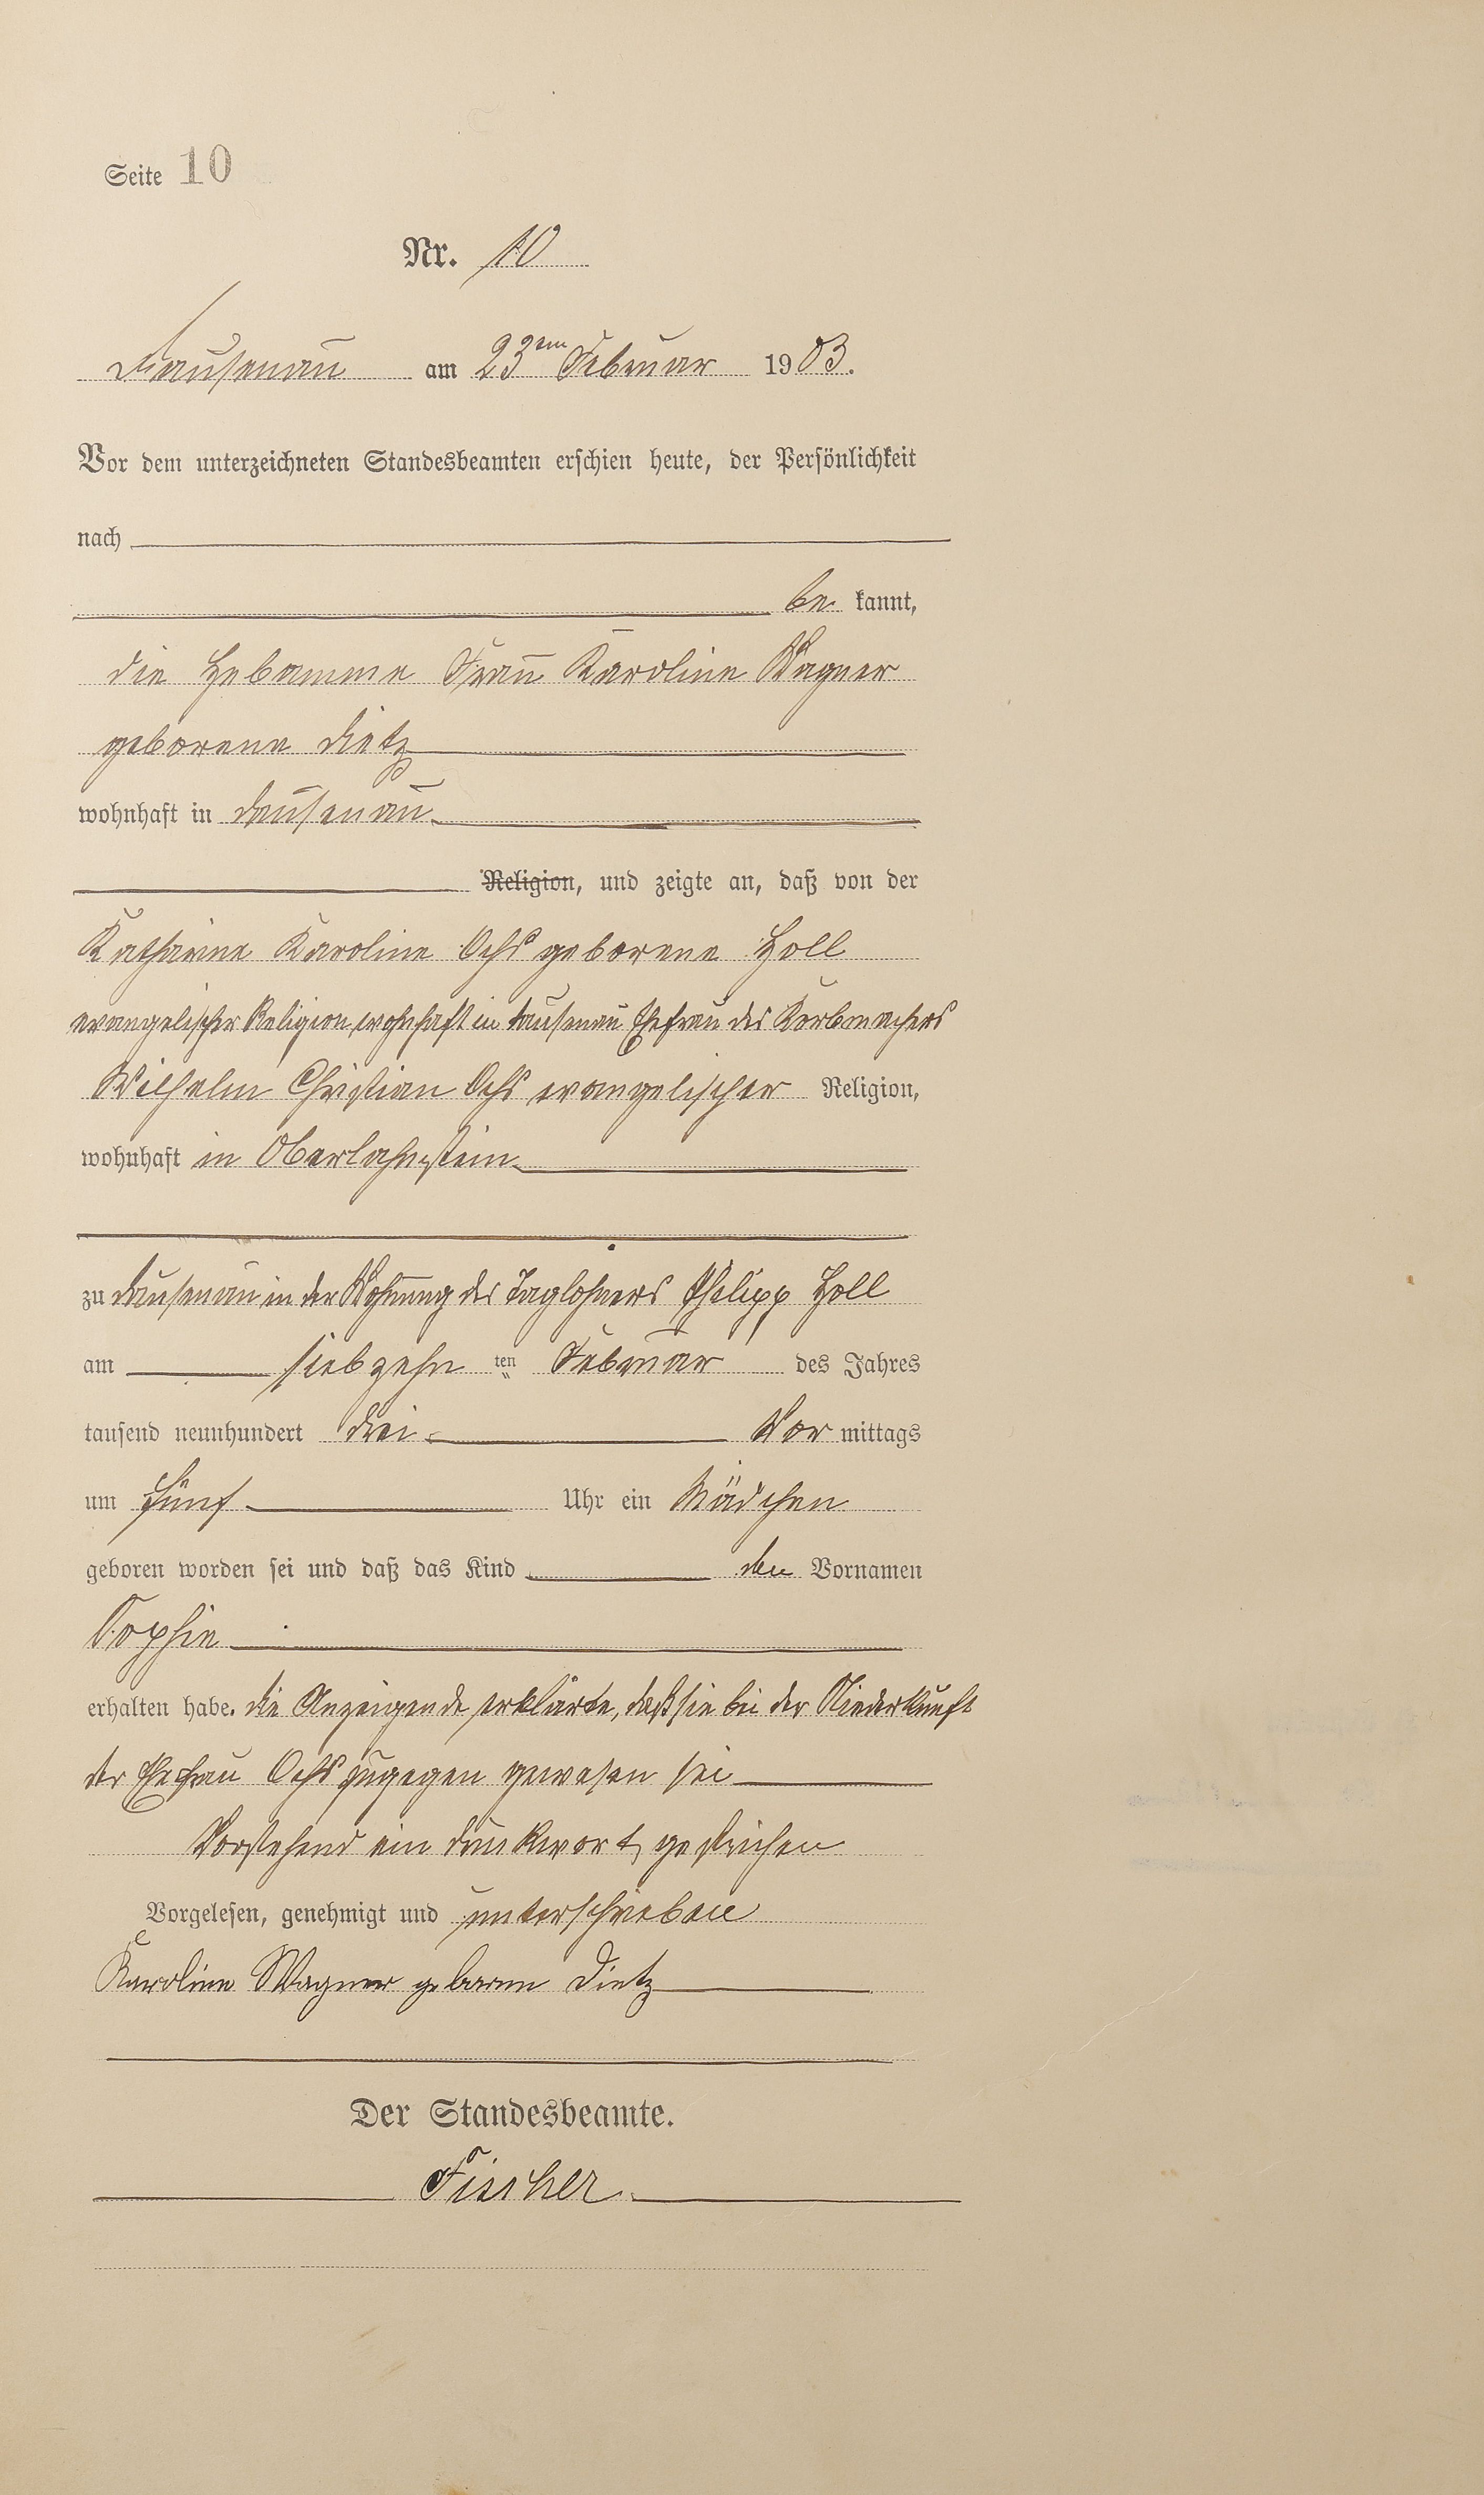 Seite 10
Nr. 10
Dausenau am 23ten Februar 1903.
Vor dem unterzeichneten Standesbeamten erschien heute, der Persönlichkeit
nach
be kannt,
die Hebamme Frau Karoline Wagner
geborene Dietz
wohnhaft in Dausenau
Religion, und zeigte an, daß von der
Katharine Karoline Ochs geborene Holl
evangelischer Religion, wohnhaft in Dausenau Ehefrau des Korbmachers
Wilhelm Christian Ochs evangelischer Religion,
wohnhaft in Oberlahnstein
zu Dausenau in der Wohnung des Taglöhners Philipp Holl
am siebzehn ten Februar des Jahres
tausend neunhundert drei Vor mittags
um fünf Uhr ein Mädchen
geboren worden sei und daß das Kind den Vornamen
Sophie
erhalten habe. Die Anzeigende erklärte, daß sie bei der Niederkunft
der Ehefrau Ochs zugegen gewesen sei
Vorstehend ein Druckwort gestrichen
Vorgelesen, genehmigt und unterschrieben
Karoline Wagner geborne Dietz
Der Standesbeamte.
Fischer